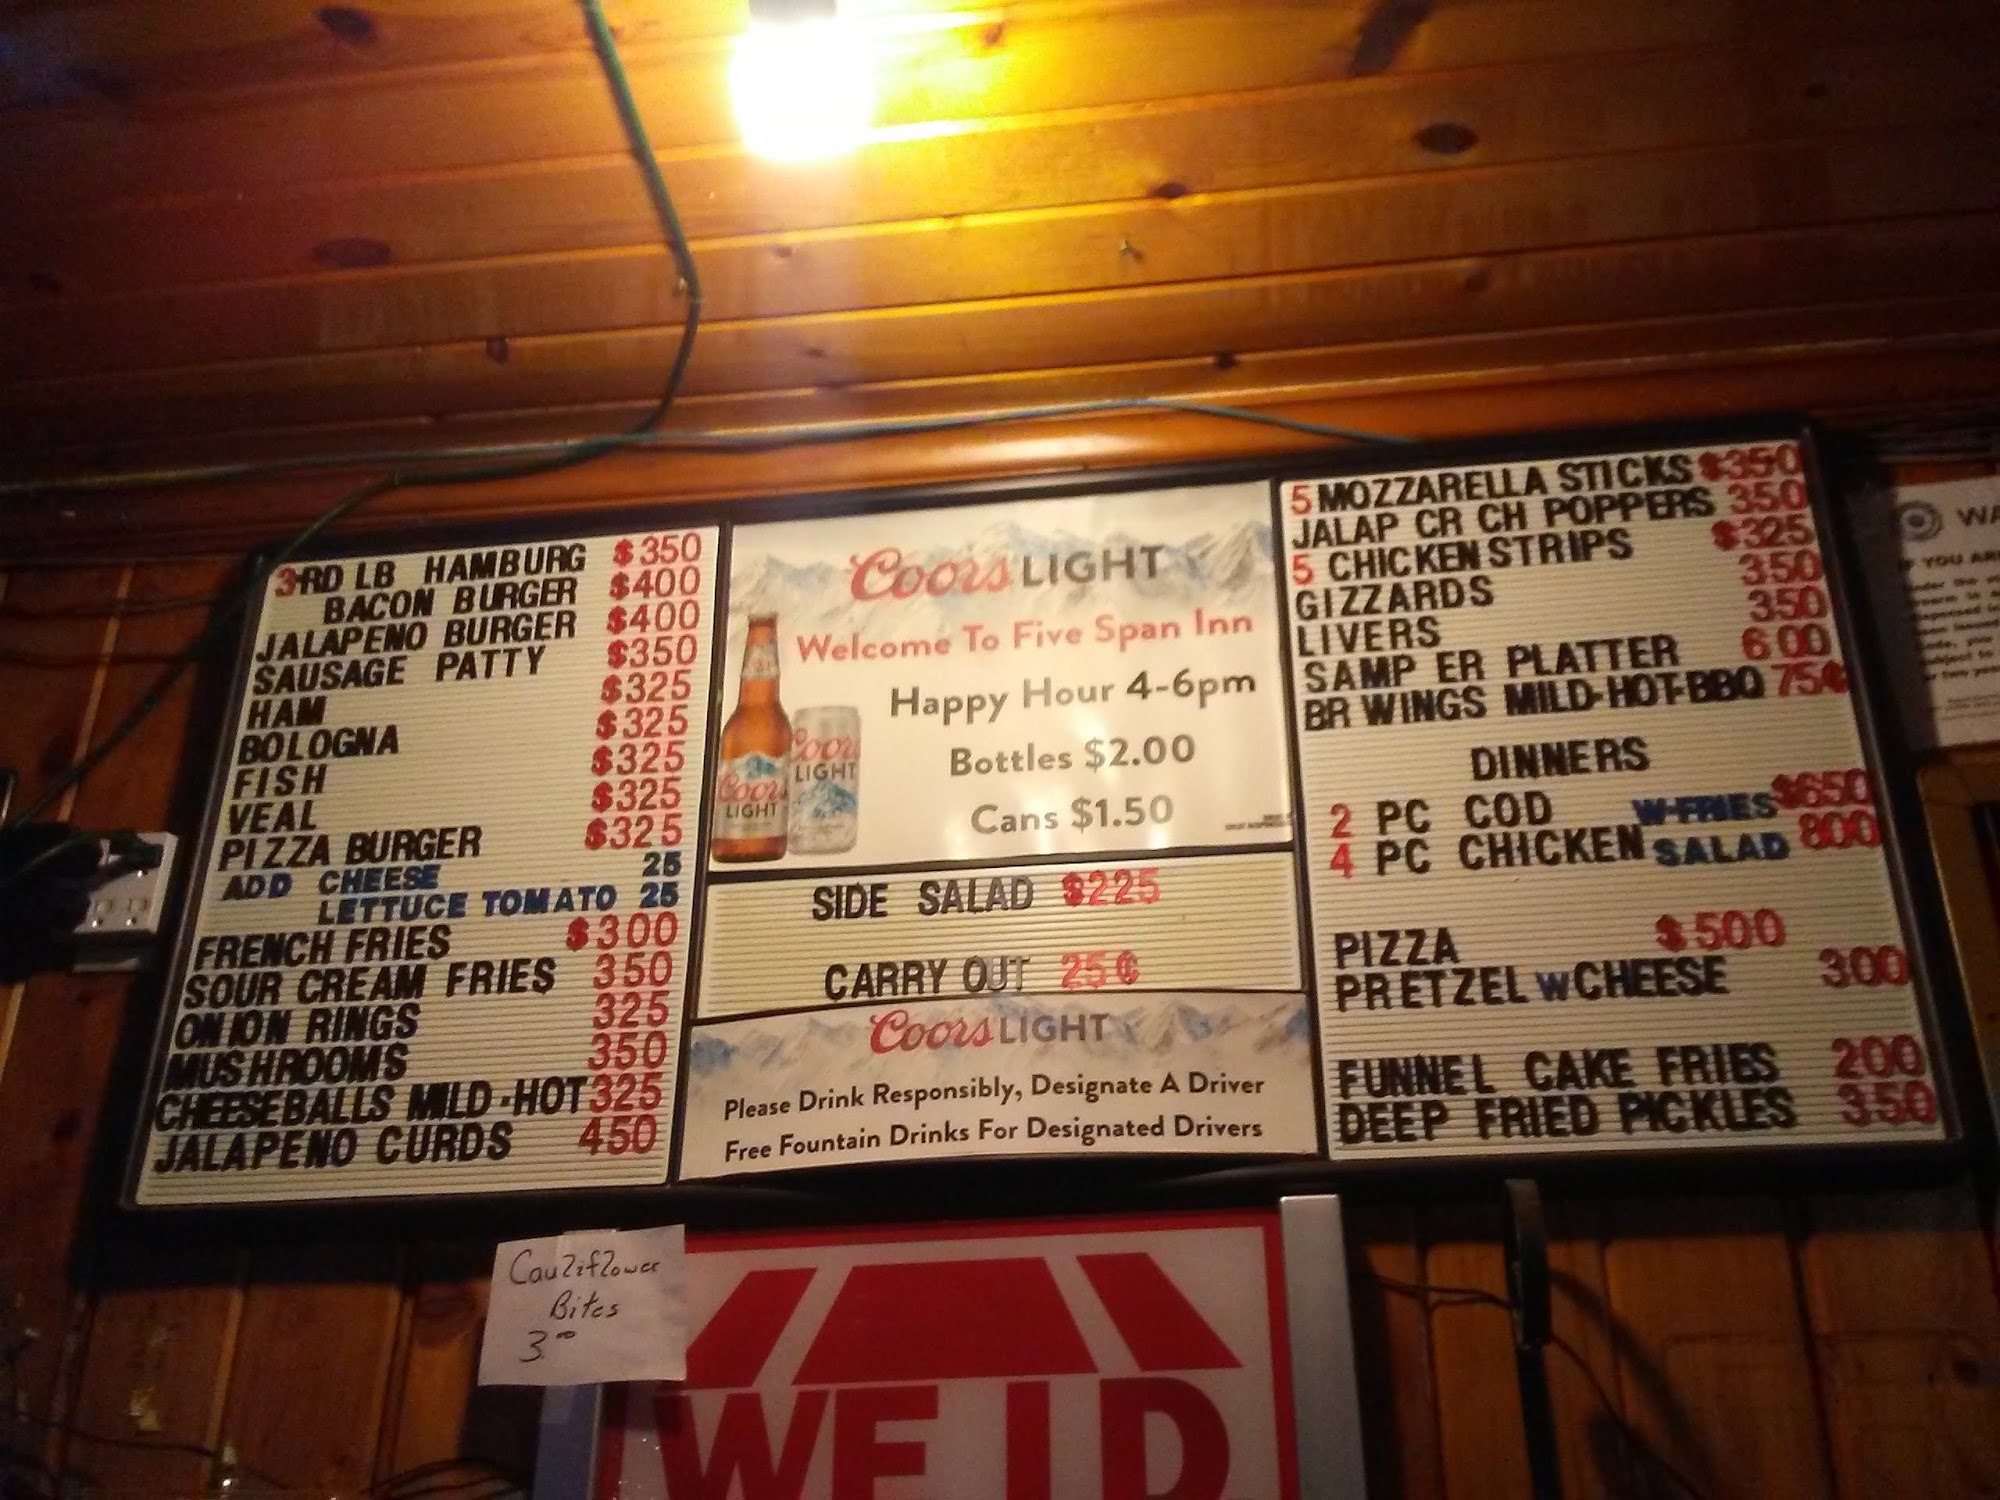 3-RD LB HAMBURG $350
BACON BURGER $400
JALAPENO BURGER $400
SAUSAGE PATTY $350
HAM $325
BOLOGNA $325
FISH $325
VEAL $325
PIZZA BURGER $325
ADD CHEESE 25
LETTUCE TOMATO 25
FRENCH FRIES $300
SOUR CREAM FRIES 350
ONION RINGS 325
MUSHROOMS 350
CHEESEBALLS MILD-HOT 325
JALAPENO CURDS 450
Coors LIGHT
Welcome To Five Span Inn
Happy Hour 4-6pm
Bottles $2.00
Cans $1.50
Coors LIGHT
Coors LIGHT
SIDE SALAD $225
CARRY OUT 25¢
Coors LIGHT
Please Drink Responsibly, Designate A Driver
Free Fountain Drinks For Designated Drivers
5 MOZZARELLA STICKS $350
JALAP CR CH POPPERS 350
5 CHICKEN STRIPS $325
GIZZARDS 350
LIVERS 350
SAMP ER PLATTER 600
BR WINGS MILD-HOT-BBQ 75¢
DINNERS
2 PC COD W-FRIES $650
4 PC CHICKEN SALAD 800
PIZZA $500
PRETZEL W CHEESE 300
FUNNEL CAKE FRIES 200
DEEP FRIED PICKLES 350
Cauliflower
Bites
3.00
WE I.D
WA